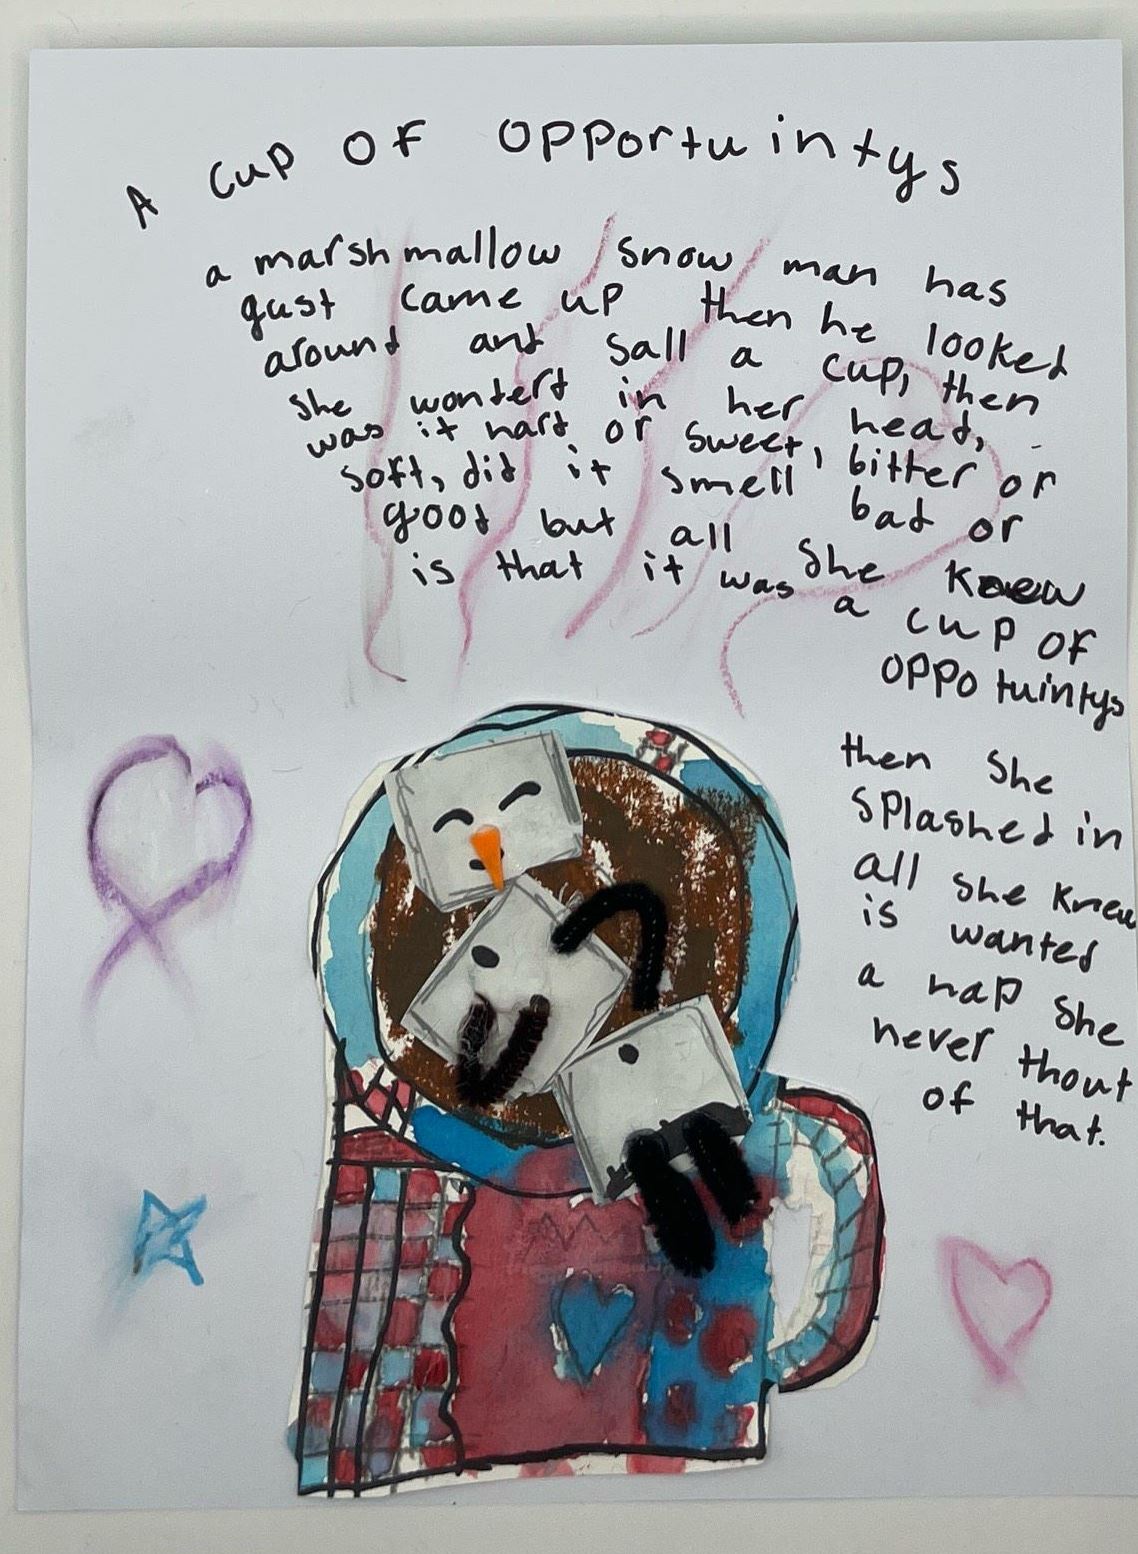 A cup of opportuintys
a marshmallow snow man has
gust came up then he looked
around and sall a cup, then
she wonderd in her head,
was it hard or sweet, bitter or
soft, did it smell bad or
good but all she knew
is that it was a cup of
oppotuintys
then she
splashed in
all she knew
is wanted
a nap she
never thout
of that.